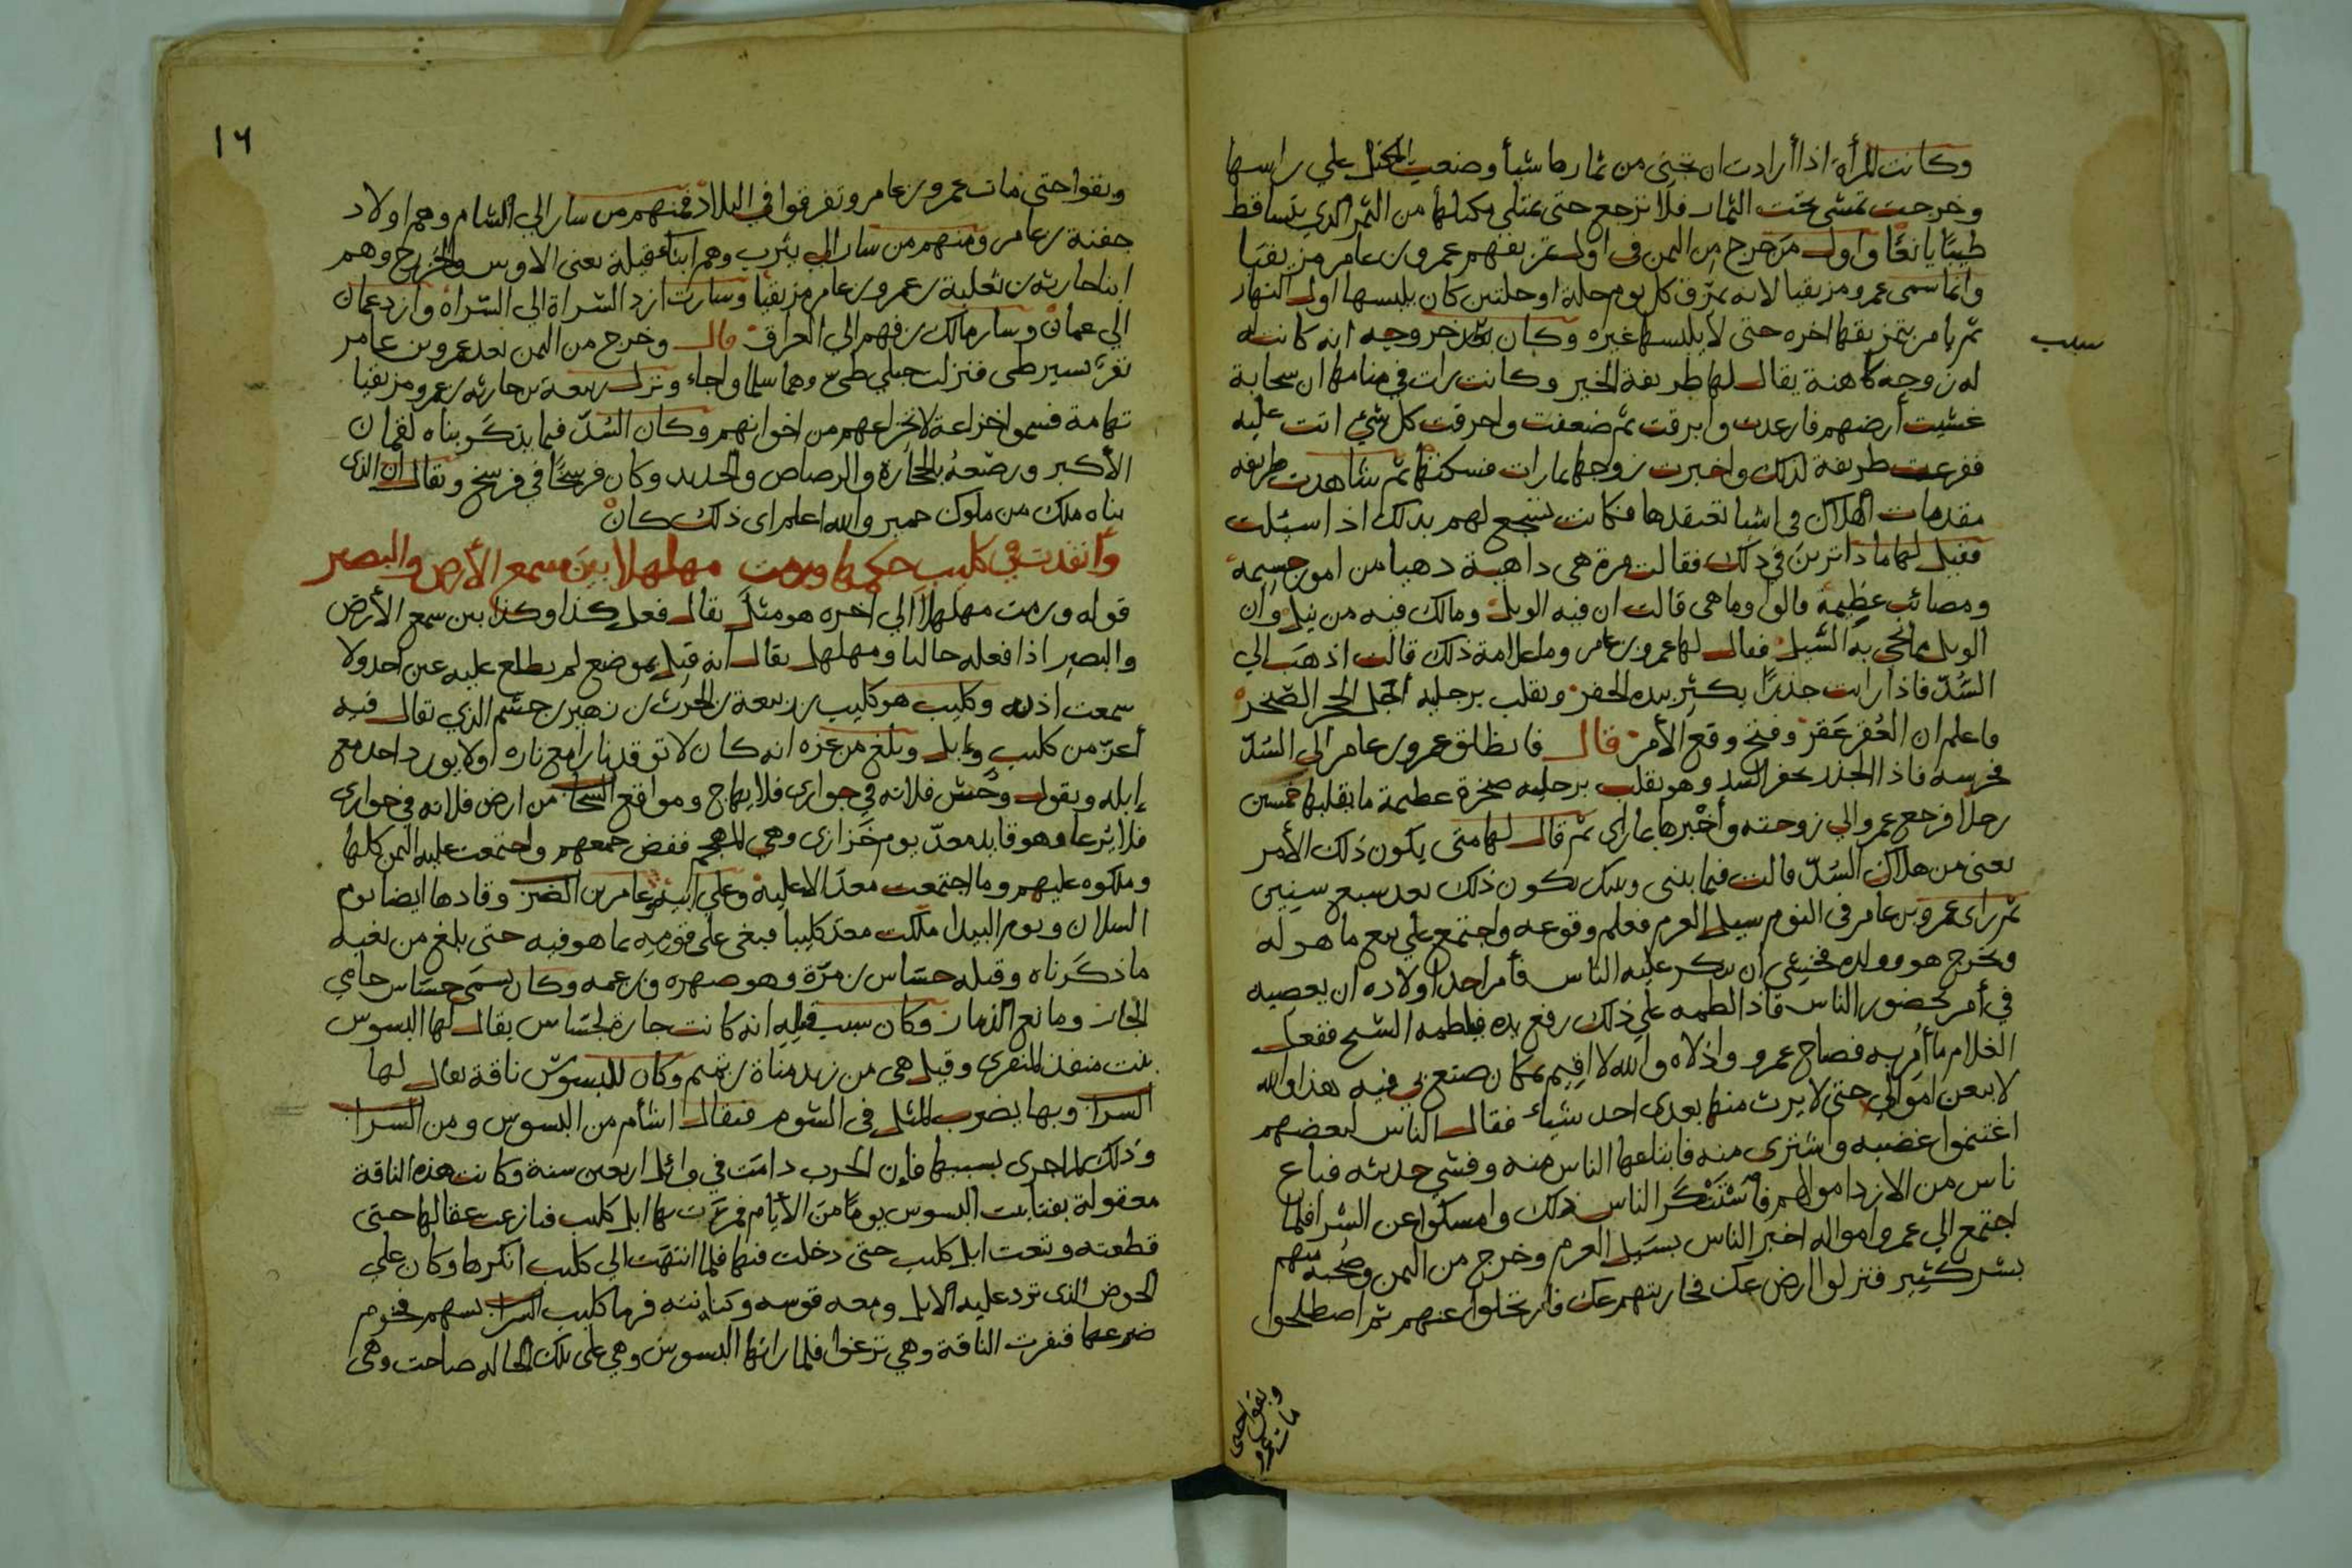 وكانت المرأة اذا أرادت ان تجنى من ثمارها شيأ وضعت المكتل على راسها
وخرجت تمشى تحت الثمار فلا ترجع حتى يمتلي مكتلها من الثمر الذي يتساقط
طيبًا يانعًا واول من خرج من اليمن فى اول تمزيقهم عمرو بن عامر مزيقيا
وانما سمى عمرو مزيقيا لانه يمزق كل يوم حلة او حلتين كان يلبسها اول النهار
ثم يامر بتمزيقها اخره حتى لا يلبسها غيره وكان سبب خروجه انه كانت
سبب
له زوجه كاهنة يقال لها طريفة الخير وكانت رات في منامها ان سحابة
غشيت أرضهم فارعدت وابرقت ثم ضعفت واحرقت كل شيء اتت عليه
ففزعت طريفة لذلك واخبرت زوجها بما رات فسكنها ثم شاهدت طريفه
مقدمات الهلاك في اشيا تعتقدها فكانت تسجع لهم بذلك اذا سئلت
فقيل لها ما ذا ترين في ذلك فقالت مرة هى داهية دهيا من امور جسيمة
ومصائب عظيمة قالوا وما هى قالت ان فيه الويل ومالك فيه من نيل وان
الويل مما يجى به السيل فقال لها عمرو بن عامر وما علامة ذلك قالت اذهب الي
السد فاذا رايت جذرًا يكثر بيده الحفر ويقلب برجليه الجبل الحجر الصخر
فاعلم ان العقر عقر وفتح وقع الأمر قال فانطلق عمرو بن عامر الى السد
فحرسه فاذا الجذر يحفر السد وهو يقلب برجليه صخرة عظيمة ما يقلبها خمسين
رجلا فرجع عمرو الي زوجته وأخبرها بما راى ثم قال لها متى يكون ذلك الأمر
يعنى من هلاك السد قالت فيما بينى وبينك يكون ذلك بعد سبع سنين
ثم راى عمرو بن عامر فى النوم سيل العرم فعلم وقوعه واجتمع على بيع ما هو له
ويخرج هو وولده فخشى ان ينكر عليه الناس فأمر احد اولاده ان يعصيه
في أمر بحضور الناس فاذا لطمه علي ذلك رفع يده فيلطمه الشيخ ففعل
الغلام ما أمر به فصاح عمرو واذلاه والله لا اقيم بمكان صنع بي فيه هذا والله
لابيعن اموالي حتى لا يرث منها بعدى احد شياء فقال الناس لبعضهم
اغتنموا غضبه واشترى منه فابتاعها الناس منه وفشى حديثه فباع
ناس من الازد اموالهم فاستنكر الناس ذلك وامسكوا عن الشرا فلما
اجتمع الي عمرو امواله اخبر الناس بسيل العرم وخرج من اليمن وصحبه منهم
بشر كثير فنزلوا ارض عك فحاربتهم عك فارتحلوا عنهم ثم اصطلحوا
وبقوا حتى
مات عمرو
١٦
وبقوا حتى مات عمرو بن عامر وتفرقوا في البلاد فمنهم من سار الي الشام وهم اولاد
جفنة بن عامر ومنهم من سار الى يثرب وهم ابنا قيلة يعنى الاوس والخزرج وهم
ابنا حارثه بن ثعلبة بن عمرو بن عامر مزيقيا وسارت ازد الشراة الي الشراة وازد عمان
الي عمان وسار مالك بن فهم الي العراق قال وخرج من اليمن بعد عمرو بن عامر
نفر يسير طى فنزلت جبلي طيئ وهما سلما واجاء ونزلت ربيعة بن حارثه بن عمرو مزيقيا
تهامة فسموا خزاعة لانخزاعهم من اخوانهم وكان السد فيما يذكر بناه لقمان
الأكبر ورصعه بالحجارة والرصاص والحديد وكان فرسخًا في فرسخ ويقال ان الذى
بناه ملك من ملوك حمير والله اعلم اى ذلك كان
وأنفذت في كليب حكمها ورمت مهلهلا بين سمع الأرض والبصر
قوله ورمت مهلهلا الي اخره هو مثل يقال فعل كذا وكذا بين سمع الأرض
والبصر اذا فعله خاليا ومهلهل يقال انه قتل بموضع لم يطلع عليه عين احد ولا
سمعت اذنه وكليب هو كليب بن ربيعة بن الحرث بن زهير بن جشم الذي يقال فيه
أعز من كليب وايل وبلغ من عزه انه كان لا توقد نار مع ناره ولا يورد احد مع
إبله ويقول وحش فلانه في جوارى فلا يهاج ومواقع السحاب من ارض فلانه في جوارى
فلا يرعا وهو قايد معد يوم خزازى وهي المهجم ففض جمعهم واجتمعت عليه اليمن كلها
وملكوه عليهم وما اجتمعت معد الا عليه وعلي ابيه وعامر بن الضرب وقادها ايضا يوم
السلان ويوم البيدا ملكت معد كليبا فبغى على قومه بما هو فيه حتى بلغ من بغيه
ما ذكرناه وقتله جساس بن مرة وهو صهره وبن عمه وكان يسمى جساس حامي
الجار ومانع الذمار وكان سبب قتله انه كانت جارة لجساس يقال لها البسوس
بنت منقذ المنقرى وقيل هى من زيد مناة بن تميم وكان للبسوس ناقة يقال لها
السراب وبها يضرب المثل فى الشوم فيقال اشأم من البسوس ومن السراب
وذلك لما جرى بسببها فإن الحرب دامت في وائل اربعين سنة وكانت هذه الناقة
معقولة بفنا بيت البسوس يومًا من الأيام فمرت بها ابل كليب فنازعت عقالها حتى
قطعته وتبعت ابل كليب حتى دخلت فيها فلما انتهت الي كليب انكرها وكان علي
الحوض الذى ترد عليه الابل ومعه قوسه وكنانته فرما كليب السراب بسهم فخرم
ضرعها فنفرت الناقة وهي ترغوا فلما راتها البسوس وهي على تلك الحاله صاحت وهى